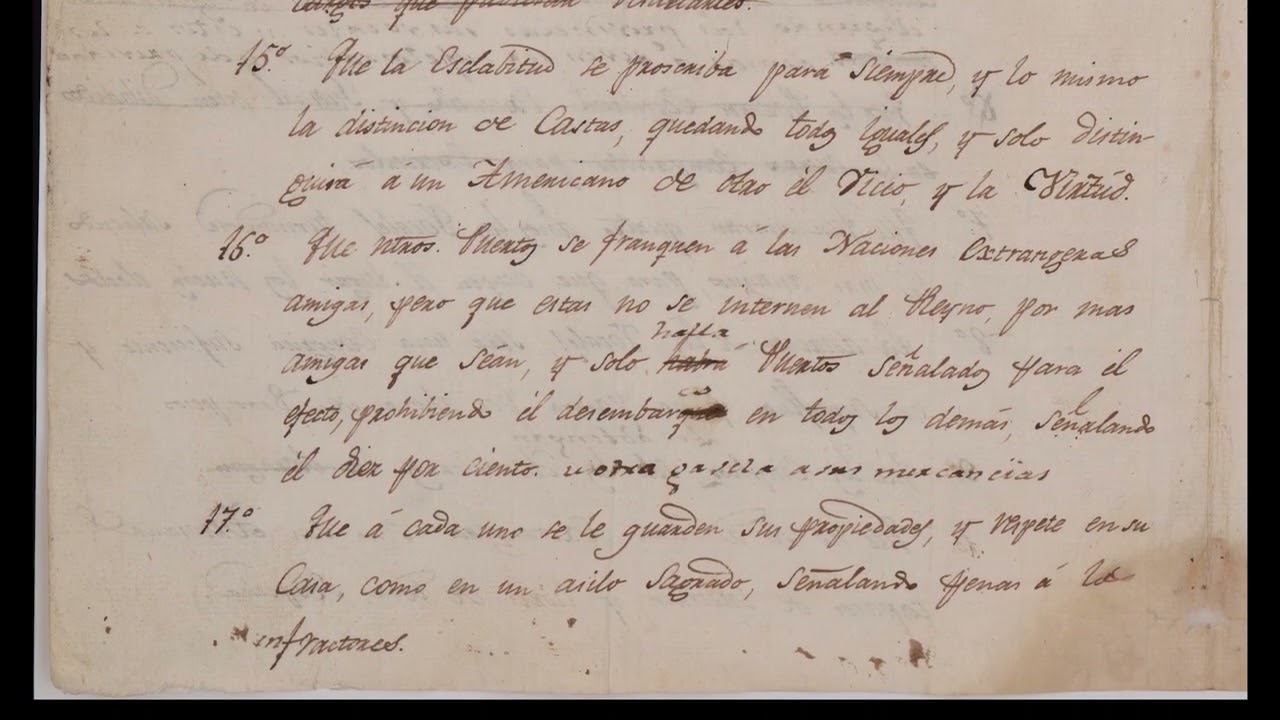 15.º Que la Esclabitud se proscriba para siempre, y lo mismo
la distincion de Castas, quedando todos iguales, y solo distin-
guira á un Americano de otro él vicio, y la Virtud.
16.º Que ntros. Puertos se franqueen á las Naciones extrangeras
amigas, pero que estas no se internen al Reyno, por mas
halla
amigas que seán, y solo habra Puertos señalados para él
co
efecto, prohibiendo él desembarque en todos los demás, señalando
él diez por ciento. u otra gavela a sus mercancias
17.º Que á cada uno se le guarden sus propiedades, y respete en su
Casa, como en un asilo sagrado, señalando penas á los
infractores.